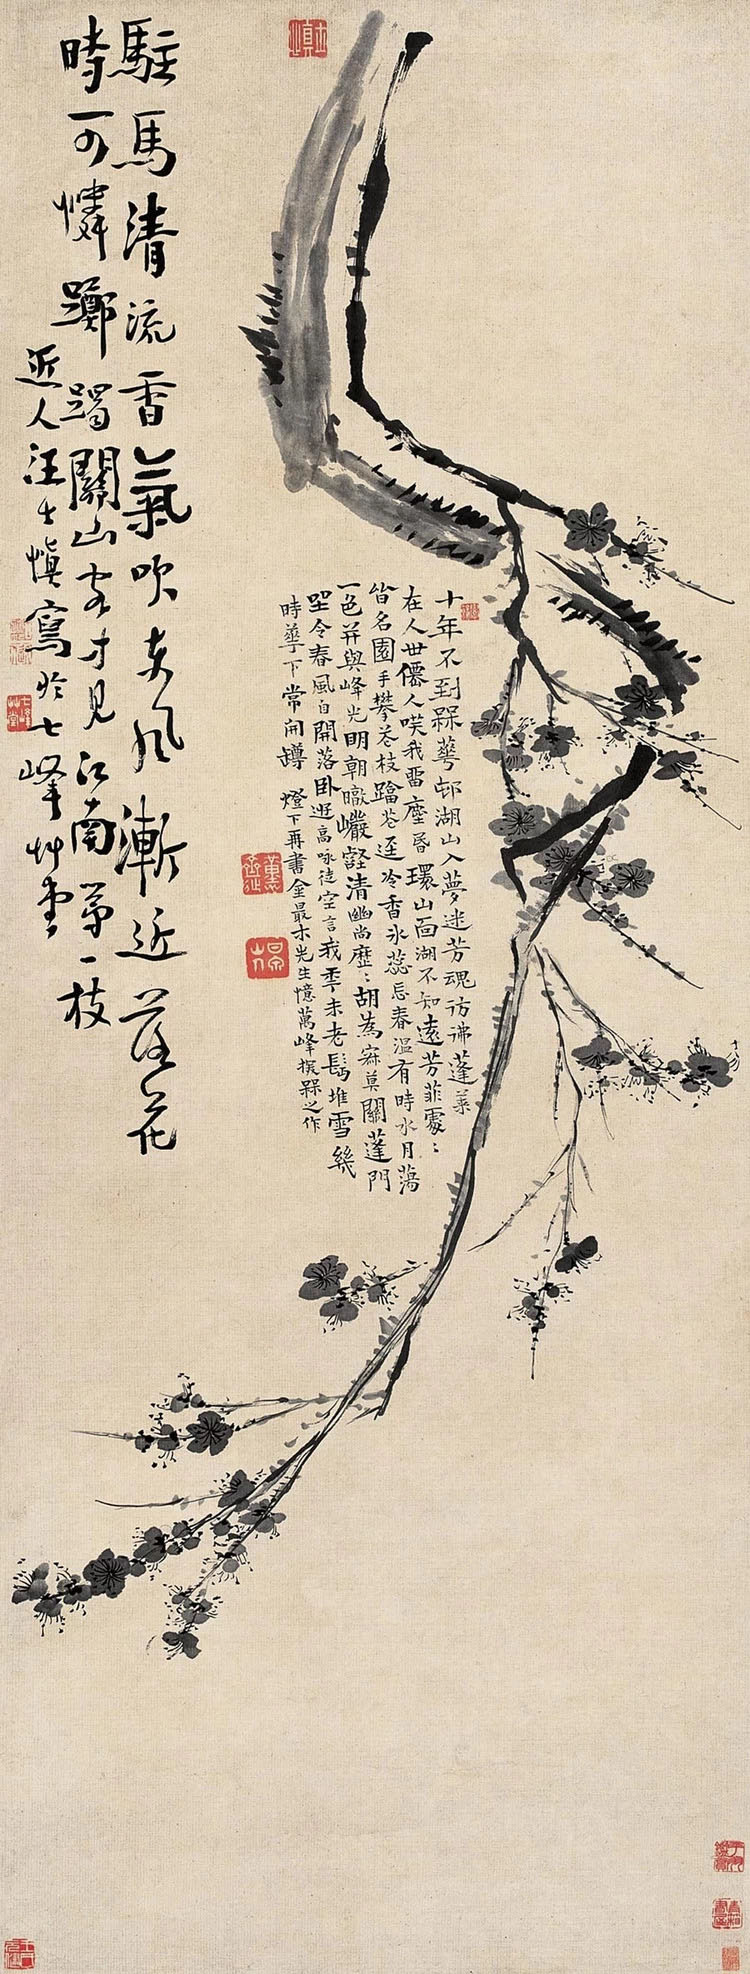 十年不到槑華邨湖山入夢迷芳魂彷彿蓬萊
在人世僊人咲我留塵昏環山面湖不知遠芳菲處﹕
皆名園手攀花枝踏花迳冷香冰蕊忘春温有時水月蕩
一色并與峰光明朝暾巖壑清幽尚歷﹕胡為寂莫關蓬門
坐令春風自開落臥遊高咏徒空言我季未老髩堆雪幾
時華下常開罇 燈下再書金最木先生憶萬峰探槑之作
駐馬清流香氣吹東風漸近落花
時可憐躑躅關山客才見江南第一枝
近人汪士慎寫於七峰艸堂